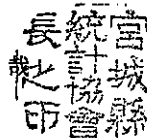 宮城縣
統計協會
長之印